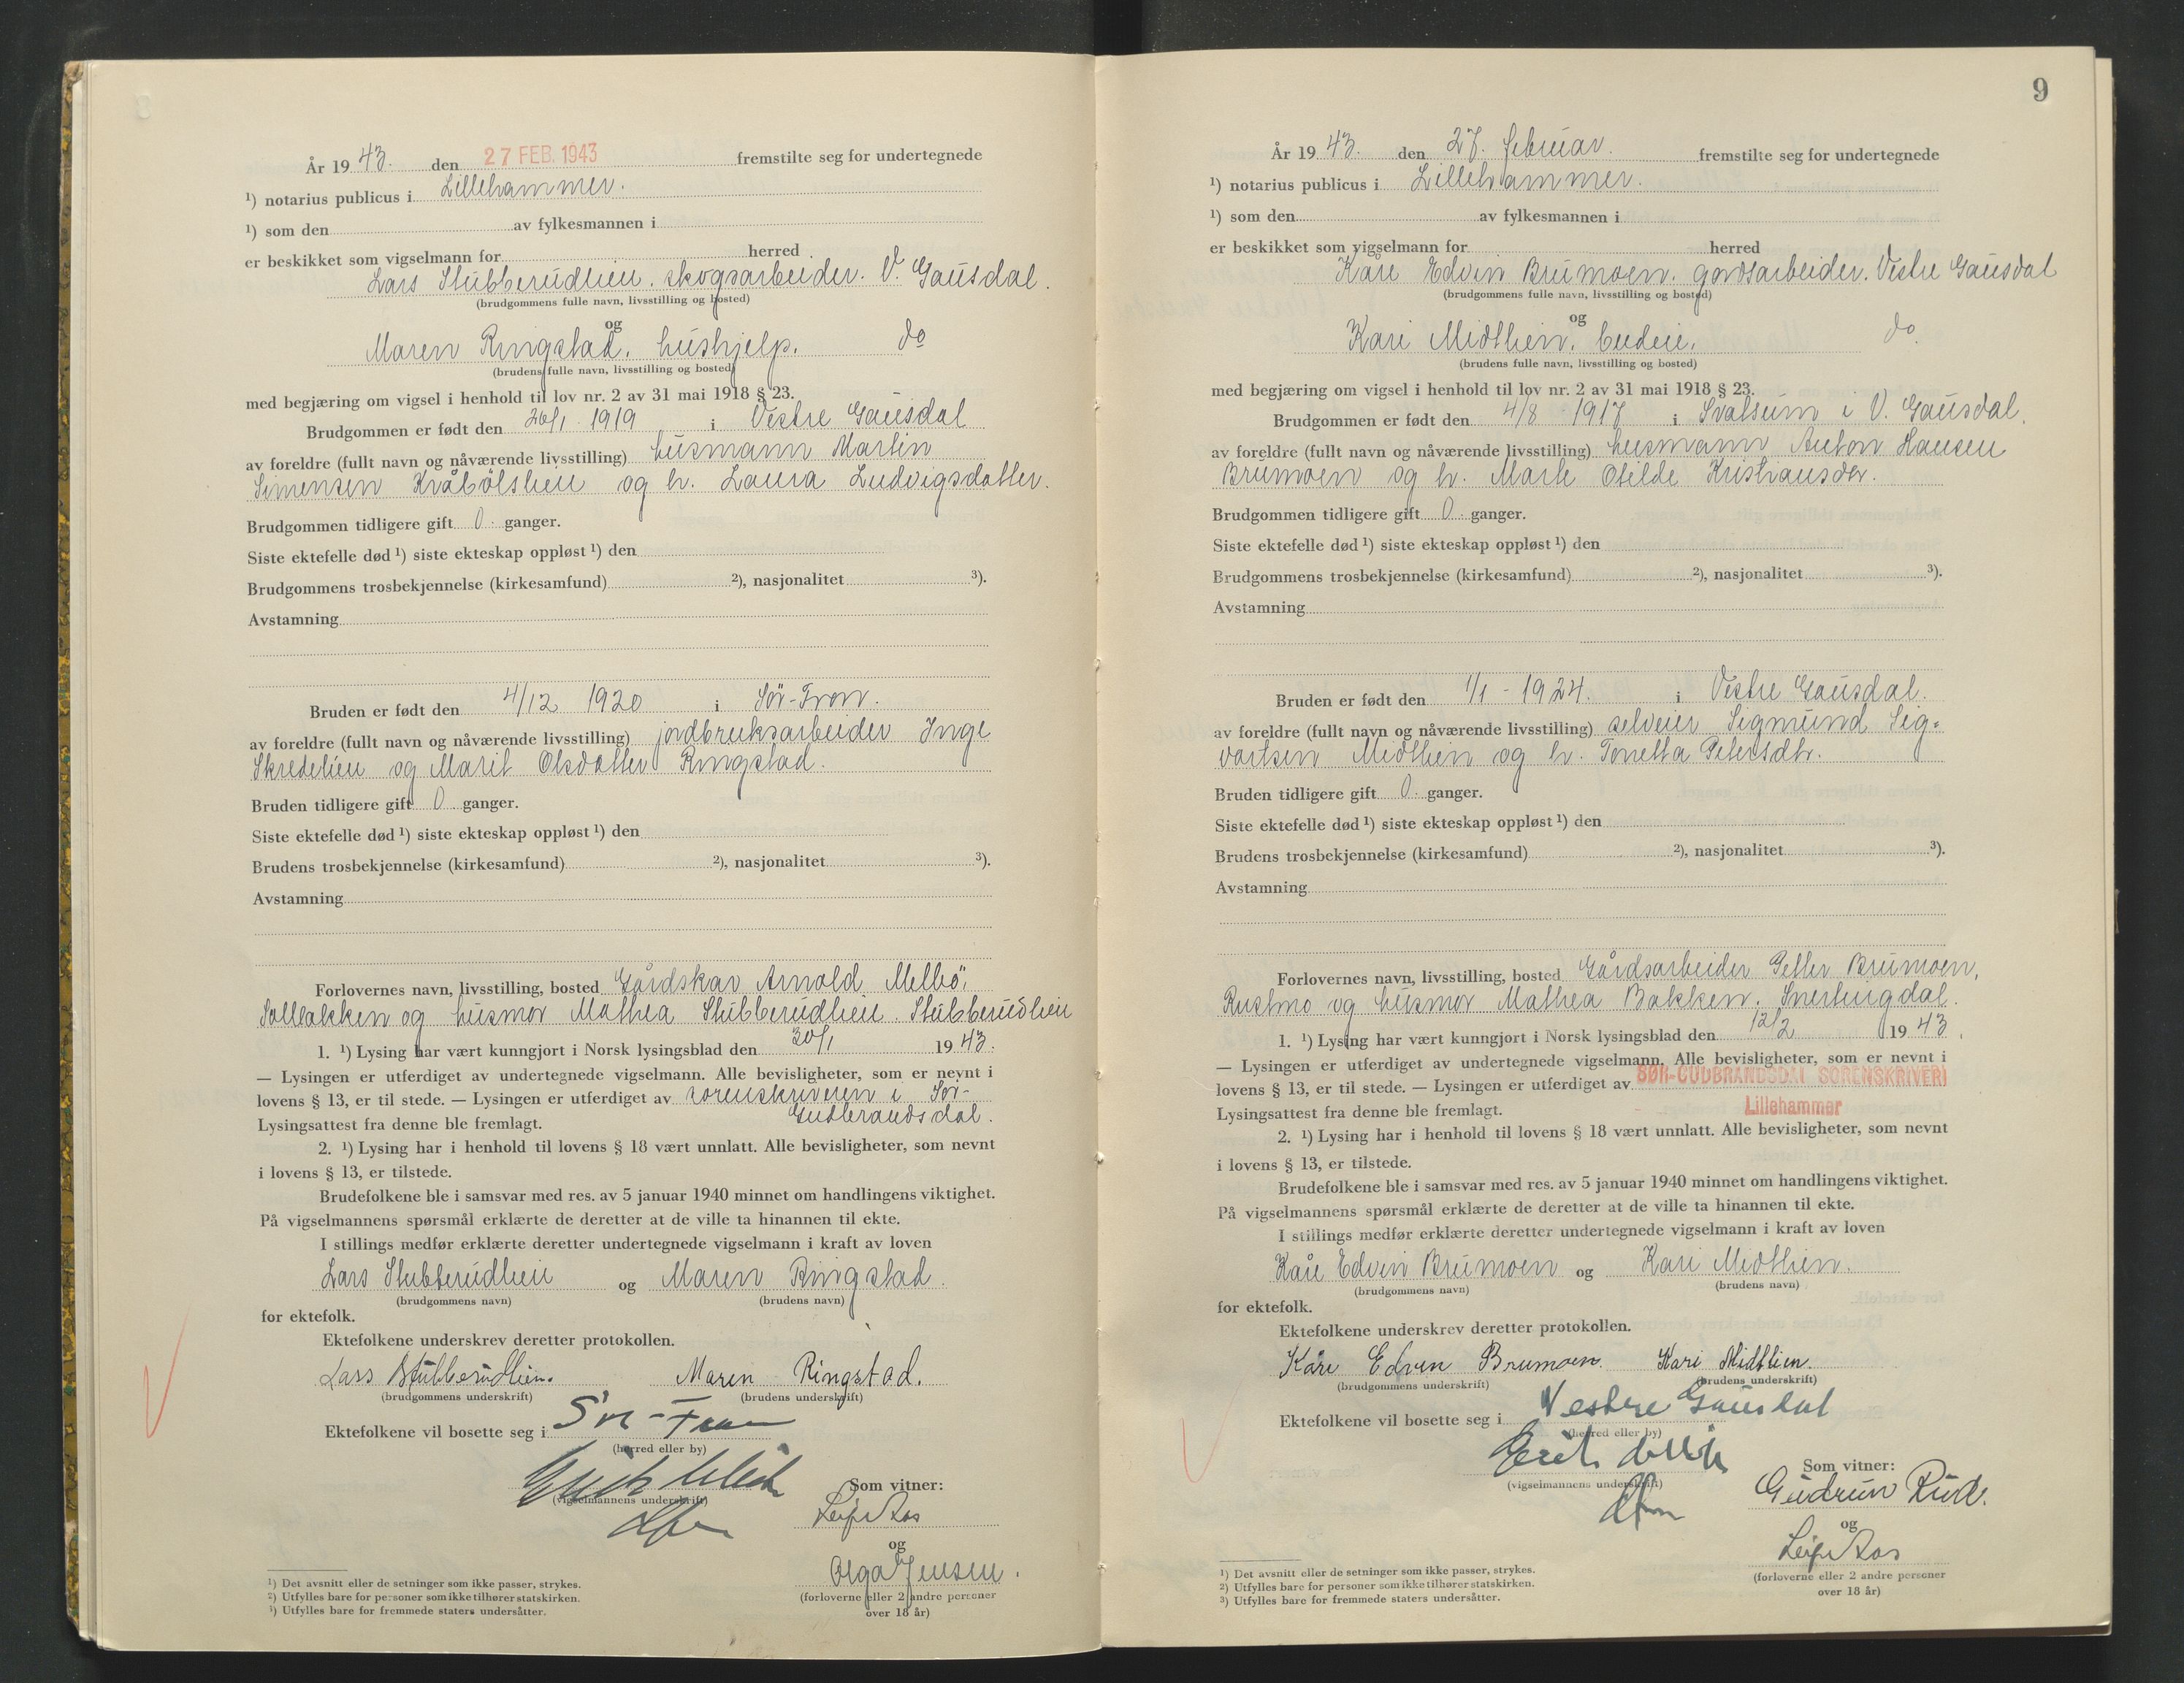 År 19 43. den 27 FEB. 1943 fremstilte seg for undertegnede
¹) notarius publicus i Lillehammer.
¹) som den av fylkesmannen i
er beskikket som vigselmann for herred
Lars Stubberudlien. skogsarbeider. V. Gausdal.
(brudgommens fulle navn, livsstilling og bosted)
og
Maren Ringstad. hushjelp. do
(brudens fulle navn, livsstilling og bosted)
med begjæring om vigsel i henhold til lov nr. 2 av 31 mai 1918 § 23.
Brudgommen er født den 26/1 1919 i Vestre Gausdal
av foreldre (fullt navn og nåværende livsstilling) husmann Martin
Simensen Kråbölslien og h. Laura Ludvigsdatter.
Brudgommen tidligere gift 0. ganger.
Siste ektefelle død ¹) siste ekteskap oppløst ¹) den
Brudgommens trosbekjennelse (kirkesamfund) ²), nasjonalitet ³).
Avstamning
Bruden er født den 4/12 1920 i Sör-Fron.
av foreldre (fullt navn og nåværende livsstilling) jordbruksarbeider Inge
Skredelien og Marit Olsdatter Ringstad.
Bruden tidligere gift 0. ganger.
Siste ektefelle død ¹) siste ekteskap oppløst ¹) den
Brudens trosbekjennelse (kirkesamfund) ²), nasjonalitet ³).
Avstamning
Forlovernes navn, livsstilling, bosted Gårdskar Arnold Melbö,
og husmor Mathea Stubberudlien. Stubberudlien
1. ¹) Lysing har vært kunngjort i Norsk lysingsblad den 30/1 19 43.
— Lysingen er utferdiget av undertegnede vigselmann. Alle bevisligheter, som er nevnt i
lovens § 13, er til stede. — Lysingen er utferdiget av sorenskriveren i Sör-
Gudbrandsdal.
Lysingsattest fra denne ble fremlagt.
2. ¹) Lysing har i henhold til lovens § 18 vært unnlatt. Alle bevisligheter, som nevnt
i lovens § 13, er tilstede.
Brudefolkene ble i samsvar med res. av 5 januar 1940 minnet om handlingens viktighet.
På vigselmannens spørsmål erklærte de deretter at de ville ta hinannen til ekte.
I stillings medfør erklærte deretter undertegnede vigselmann i kraft av loven
Lars Stubberudlien og Maren Ringstad.
(brudgommens navn) (brudens navn)
for ektefolk.
Ektefolkene underskrev deretter protokollen.
Lars Stubberudlien. Maren Ringstad.
(brudgommens underskrift) (brudens underskrift)
Ektefolkene vil bosette seg i Sör-Fron
(herred eller by)
(vigselmannens underskrift)
Som vitner:
Leif Aas
og
Olga Jensen.
(forloverne eller 2 andre personer
over 18 år)
¹) Det avsnitt eller de setninger som ikke passer, strykes.
²) Utfylles bare for personer som ikke tilhører statskirken.
³) Utfylles bare for fremmede staters undersåtter.
9
År 19 43. den 27. februar. fremstilte seg for undertegnede
¹) notarius publicus i Lillehammer.
¹) som den av fylkesmannen i
er beskikket som vigselmann for herred
Kåre Edvin Brumoen. gårdsarbeider. Vestre Gausdal
(brudgommens fulle navn, livsstilling og bosted)
og
Kari Midtlien. budeie. do.
(brudens fulle navn, livsstilling og bosted)
med begjæring om vigsel i henhold til lov nr. 2 av 31 mai 1918 § 23.
Brudgommen er født den 4/8 1917 i Svatsum i V. Gausdal.
av foreldre (fullt navn og nåværende livsstilling) husmann Anton Hansen
Brumoen og h. Marte Otilde Kristiansdtr.
Brudgommen tidligere gift 0. ganger.
Siste ektefelle død ¹) siste ekteskap oppløst ¹) den
Brudgommens trosbekjennelse (kirkesamfund) ²), nasjonalitet ³).
Avstamning
Bruden er født den 1/1 - 1924. i Vestre Gausdal.
av foreldre (fullt navn og nåværende livsstilling) selveier Sigmund Sig=
vartsen Midtlien og h. Tonetta Petersdtr.
Bruden tidligere gift 0. ganger.
Siste ektefelle død ¹) siste ekteskap oppløst ¹) den
Brudens trosbekjennelse (kirkesamfund) ²), nasjonalitet ³).
Avstamning
Forlovernes navn, livsstilling, bosted Gårdsarbeider Petter Brumoen,
Rustmo og husmor Mathea Bakken. Snertingdal.
1. ¹) Lysing har vært kunngjort i Norsk lysingsblad den 12/2 19 43.
— Lysingen er utferdiget av undertegnede vigselmann. Alle bevisligheter, som er nevnt i
lovens § 13, er til stede. — Lysingen er utferdiget av SØR-GUDBRANDSDAL SORENSKRIVERI
Lillehammer
Lysingsattest fra denne ble fremlagt.
2. ¹) Lysing har i henhold til lovens § 18 vært unnlatt. Alle bevisligheter, som nevnt
i lovens § 13, er tilstede.
Brudefolkene ble i samsvar med res. av 5 januar 1940 minnet om handlingens viktighet.
På vigselmannens spørsmål erklærte de deretter at de ville ta hinannen til ekte.
I stillings medfør erklærte deretter undertegnede vigselmann i kraft av loven
Kåre Edvin Brumoen og Kari Midtlien.
(brudgommens navn) (brudens navn)
for ektefolk.
Ektefolkene underskrev deretter protokollen.
Kåre Edvin Brumoen. Kari Midtlien.
(brudgommens underskrift) (brudens underskrift)
Ektefolkene vil bosette seg i Vestre Gausdal
(herred eller by)
(vigselmannens underskrift)
Som vitner:
Gudrun Rud.
og
Leif Aas
(forloverne eller 2 andre personer
over 18 år)
¹) Det avsnitt eller de setninger som ikke passer, strykes.
²) Utfylles bare for personer som ikke tilhører statskirken.
³) Utfylles bare for fremmede staters undersåtter.